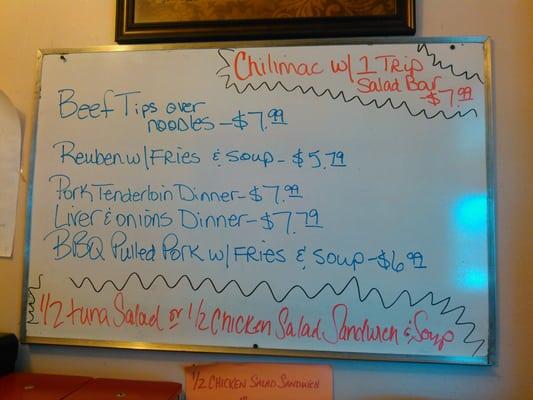 Chilimac w/ 1 Trip
Salad Bar
$7.99
Beef Tips over
noodles - $7.99
Reuben w/ Fries & Soup - $5.79
Pork Tenderloin Dinner - $7.99
Liver & onions Dinner - $7.79
BBQ Pulled Pork w/ Fries & Soup - $6.99
1/2 tuna Salad or 1/2 Chicken Salad Sandwich & Soup
1/2 Chicken Salad Sandwich